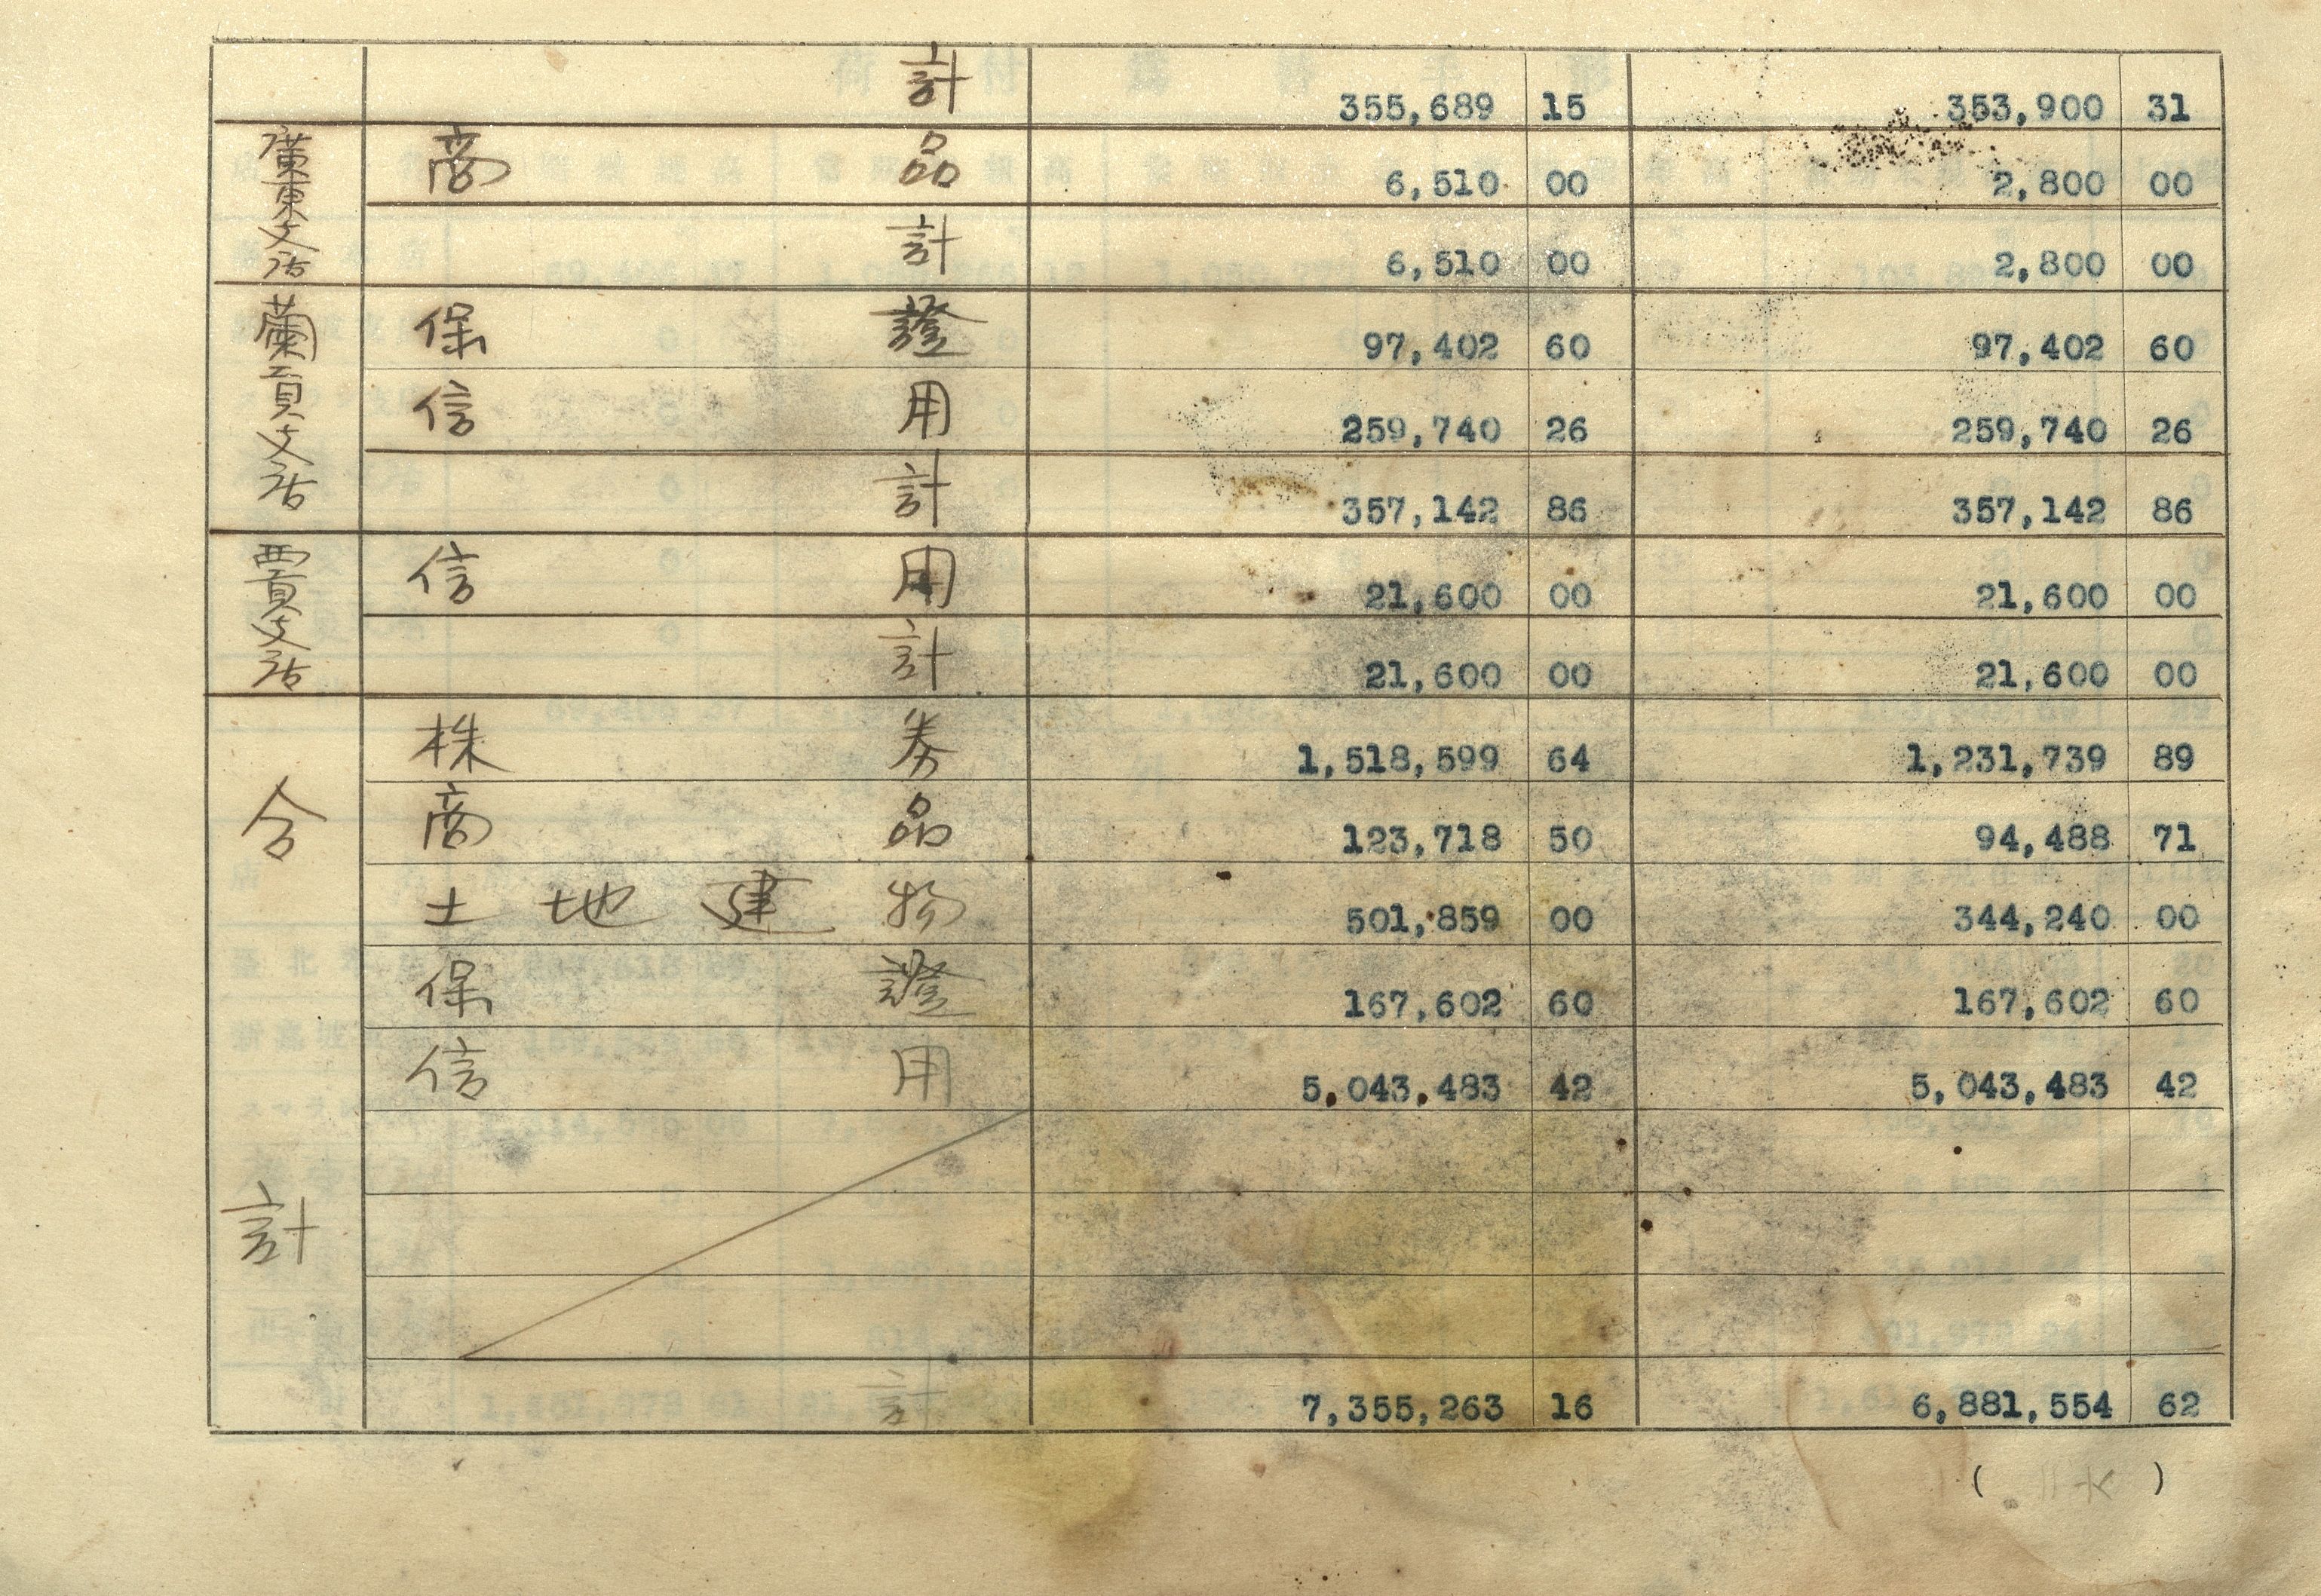 計 355,689 15 353,900 31
廣東支店 商品 6,510 00 2,800 00
計 6,510 00 2,800 00
蘭貢支店 保證 97,402 60 97,402 60
信用 259,740 26 259,740 26
計 357,142 86 357,142 86
西貢支店 信用 21,600 00 21,600 00
計 21,600 00 21,600 00
合計 株券 1,518,599 64 1,231,739 89
商品 123,718 50 94,488 71
土地建物 501,859 00 344,240 00
保證 167,602 60 167,602 60
信用 5,043,483 42 5,043,483 42
計 7,355,263 16 6,881,554 62